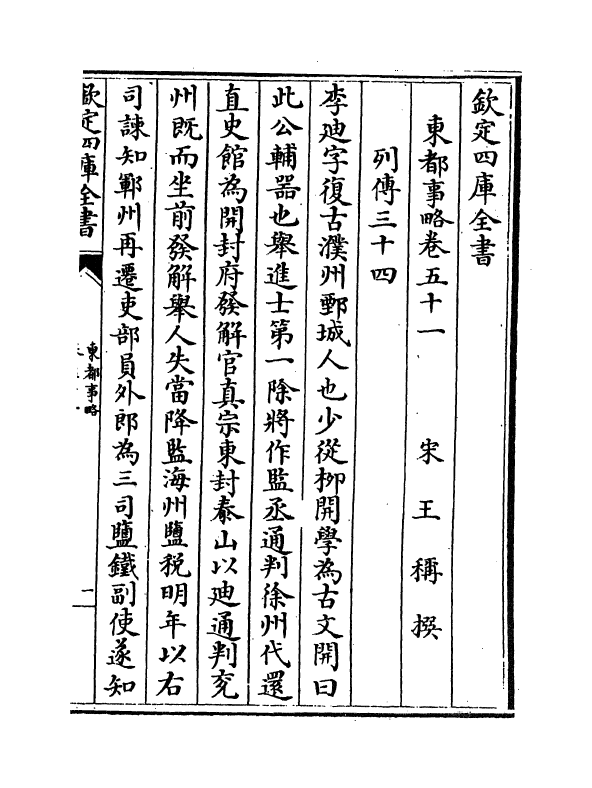 欽定四庫全書
東都事略卷五十一　宋　王　稱　撰
列傳三十四
李迪字復古濮州鄄城人也少從栁開學為古文開曰
此公輔器也舉進士第一除將作監丞通判徐州代還
直史館為開封府發解官真宗東封泰山以迪通判兖
州既而坐前發解舉人失當降監海州鹽税明年以右
司諫知鄆州再遷吏部員外郎為三司鹽鐵副使遂知
欽定四庫全書
東都事略
一